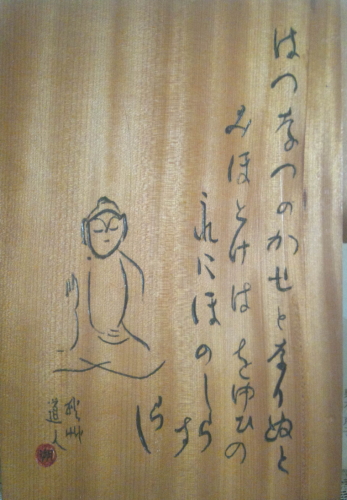 はつなつのかせとなりぬと
みほとけはをゆひの
うれにほのしらす
らし
秋艸
道人